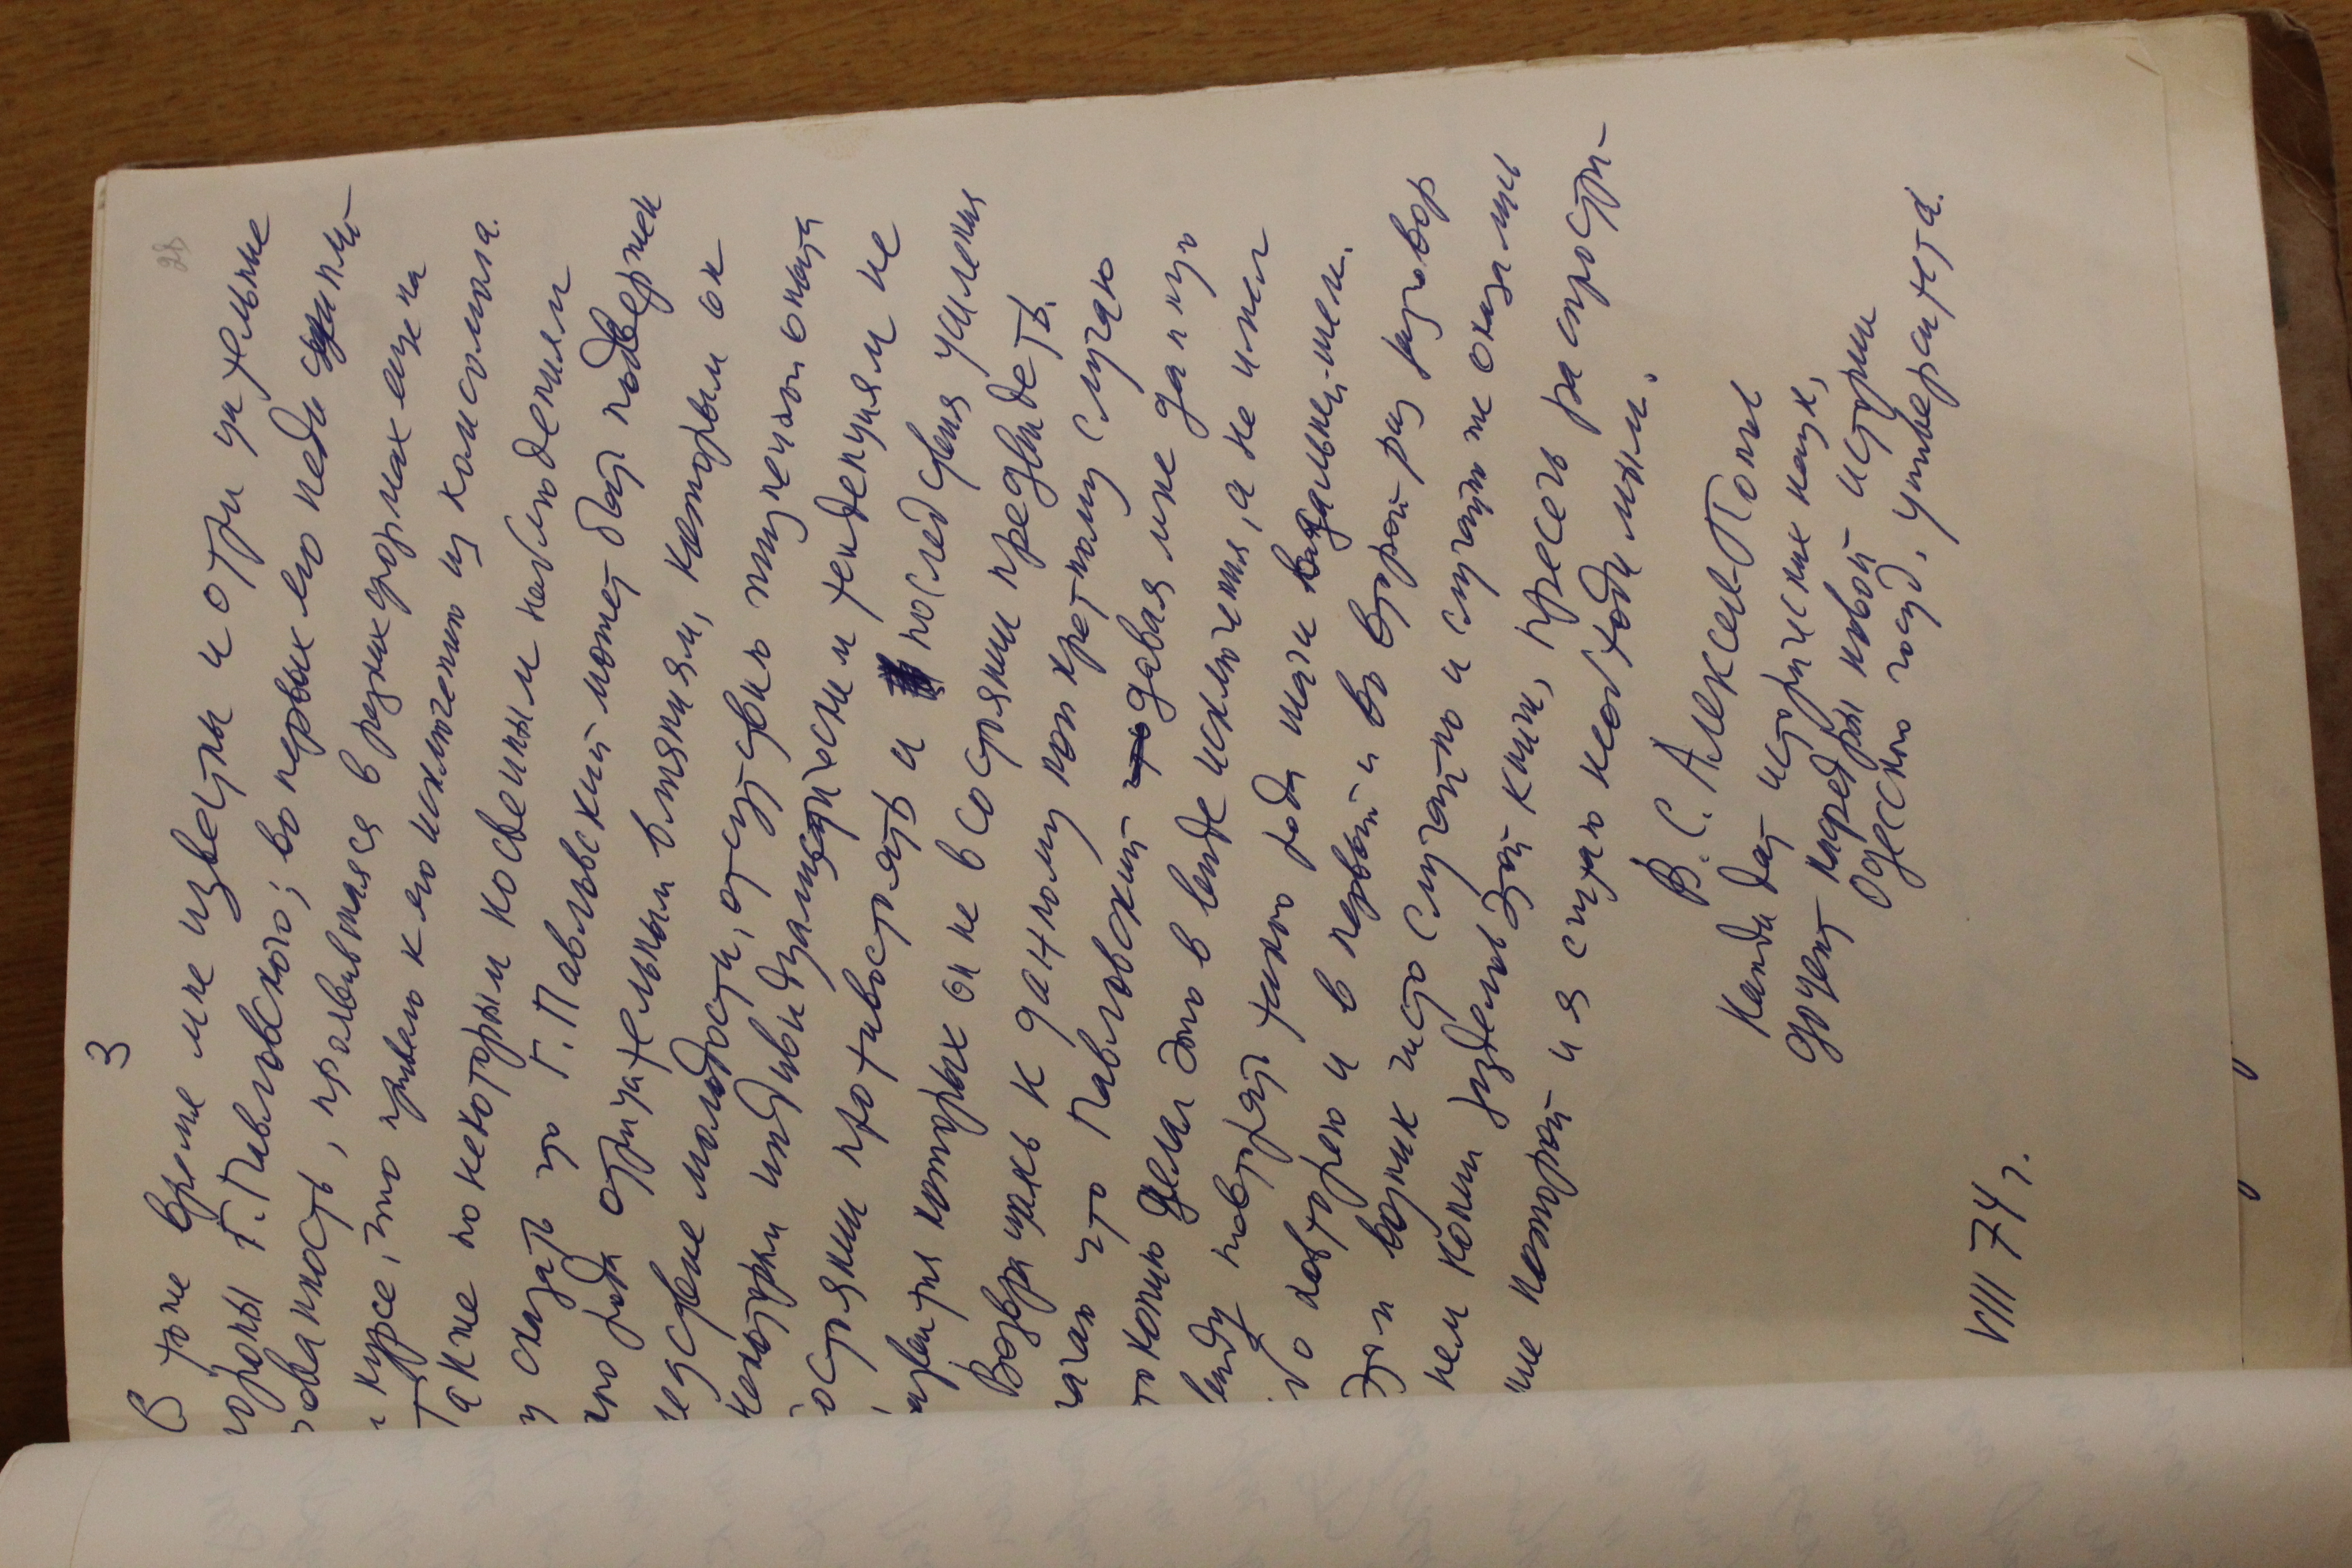 3
28
В тоже время мне известны и отрицательные
ороны Г. Павловского; во первых его недисципли-
рованность, проявившаяся в разных формах еще на
курсе, что привело к его исключению из комсомола.
Также по некоторым косвенным наблюдениям
у сказать что Г. Павловский может быть подвержен
ного рода отрицательным влияниям, которым он
едствие молодости, отсутствию жизненного опыта
некоторым индивидуалистическим тенденциям не
состоянии противостоять и последствия усиления
развития которых он не в состоянии предвидеть.
Возвращаясь к данному конкретному случаю
лагаю что Павловский давая мне данную
токопию делал это в виде исключения, а не имел
виду повторять такого рода шаги в дальнейшем.
бо повторяю и в первый и во второй раз разговор
этом возник чисто случайно и случайно же оказались
нем копии разделов этой книги, пресечь распростра-
ние которой и я считаю необходимым.
В. С. Алексеев-Попов
Кандидат исторических наук,
доцент кафедры новой истории
Одесского госуд. университета.
VIII 74 г.